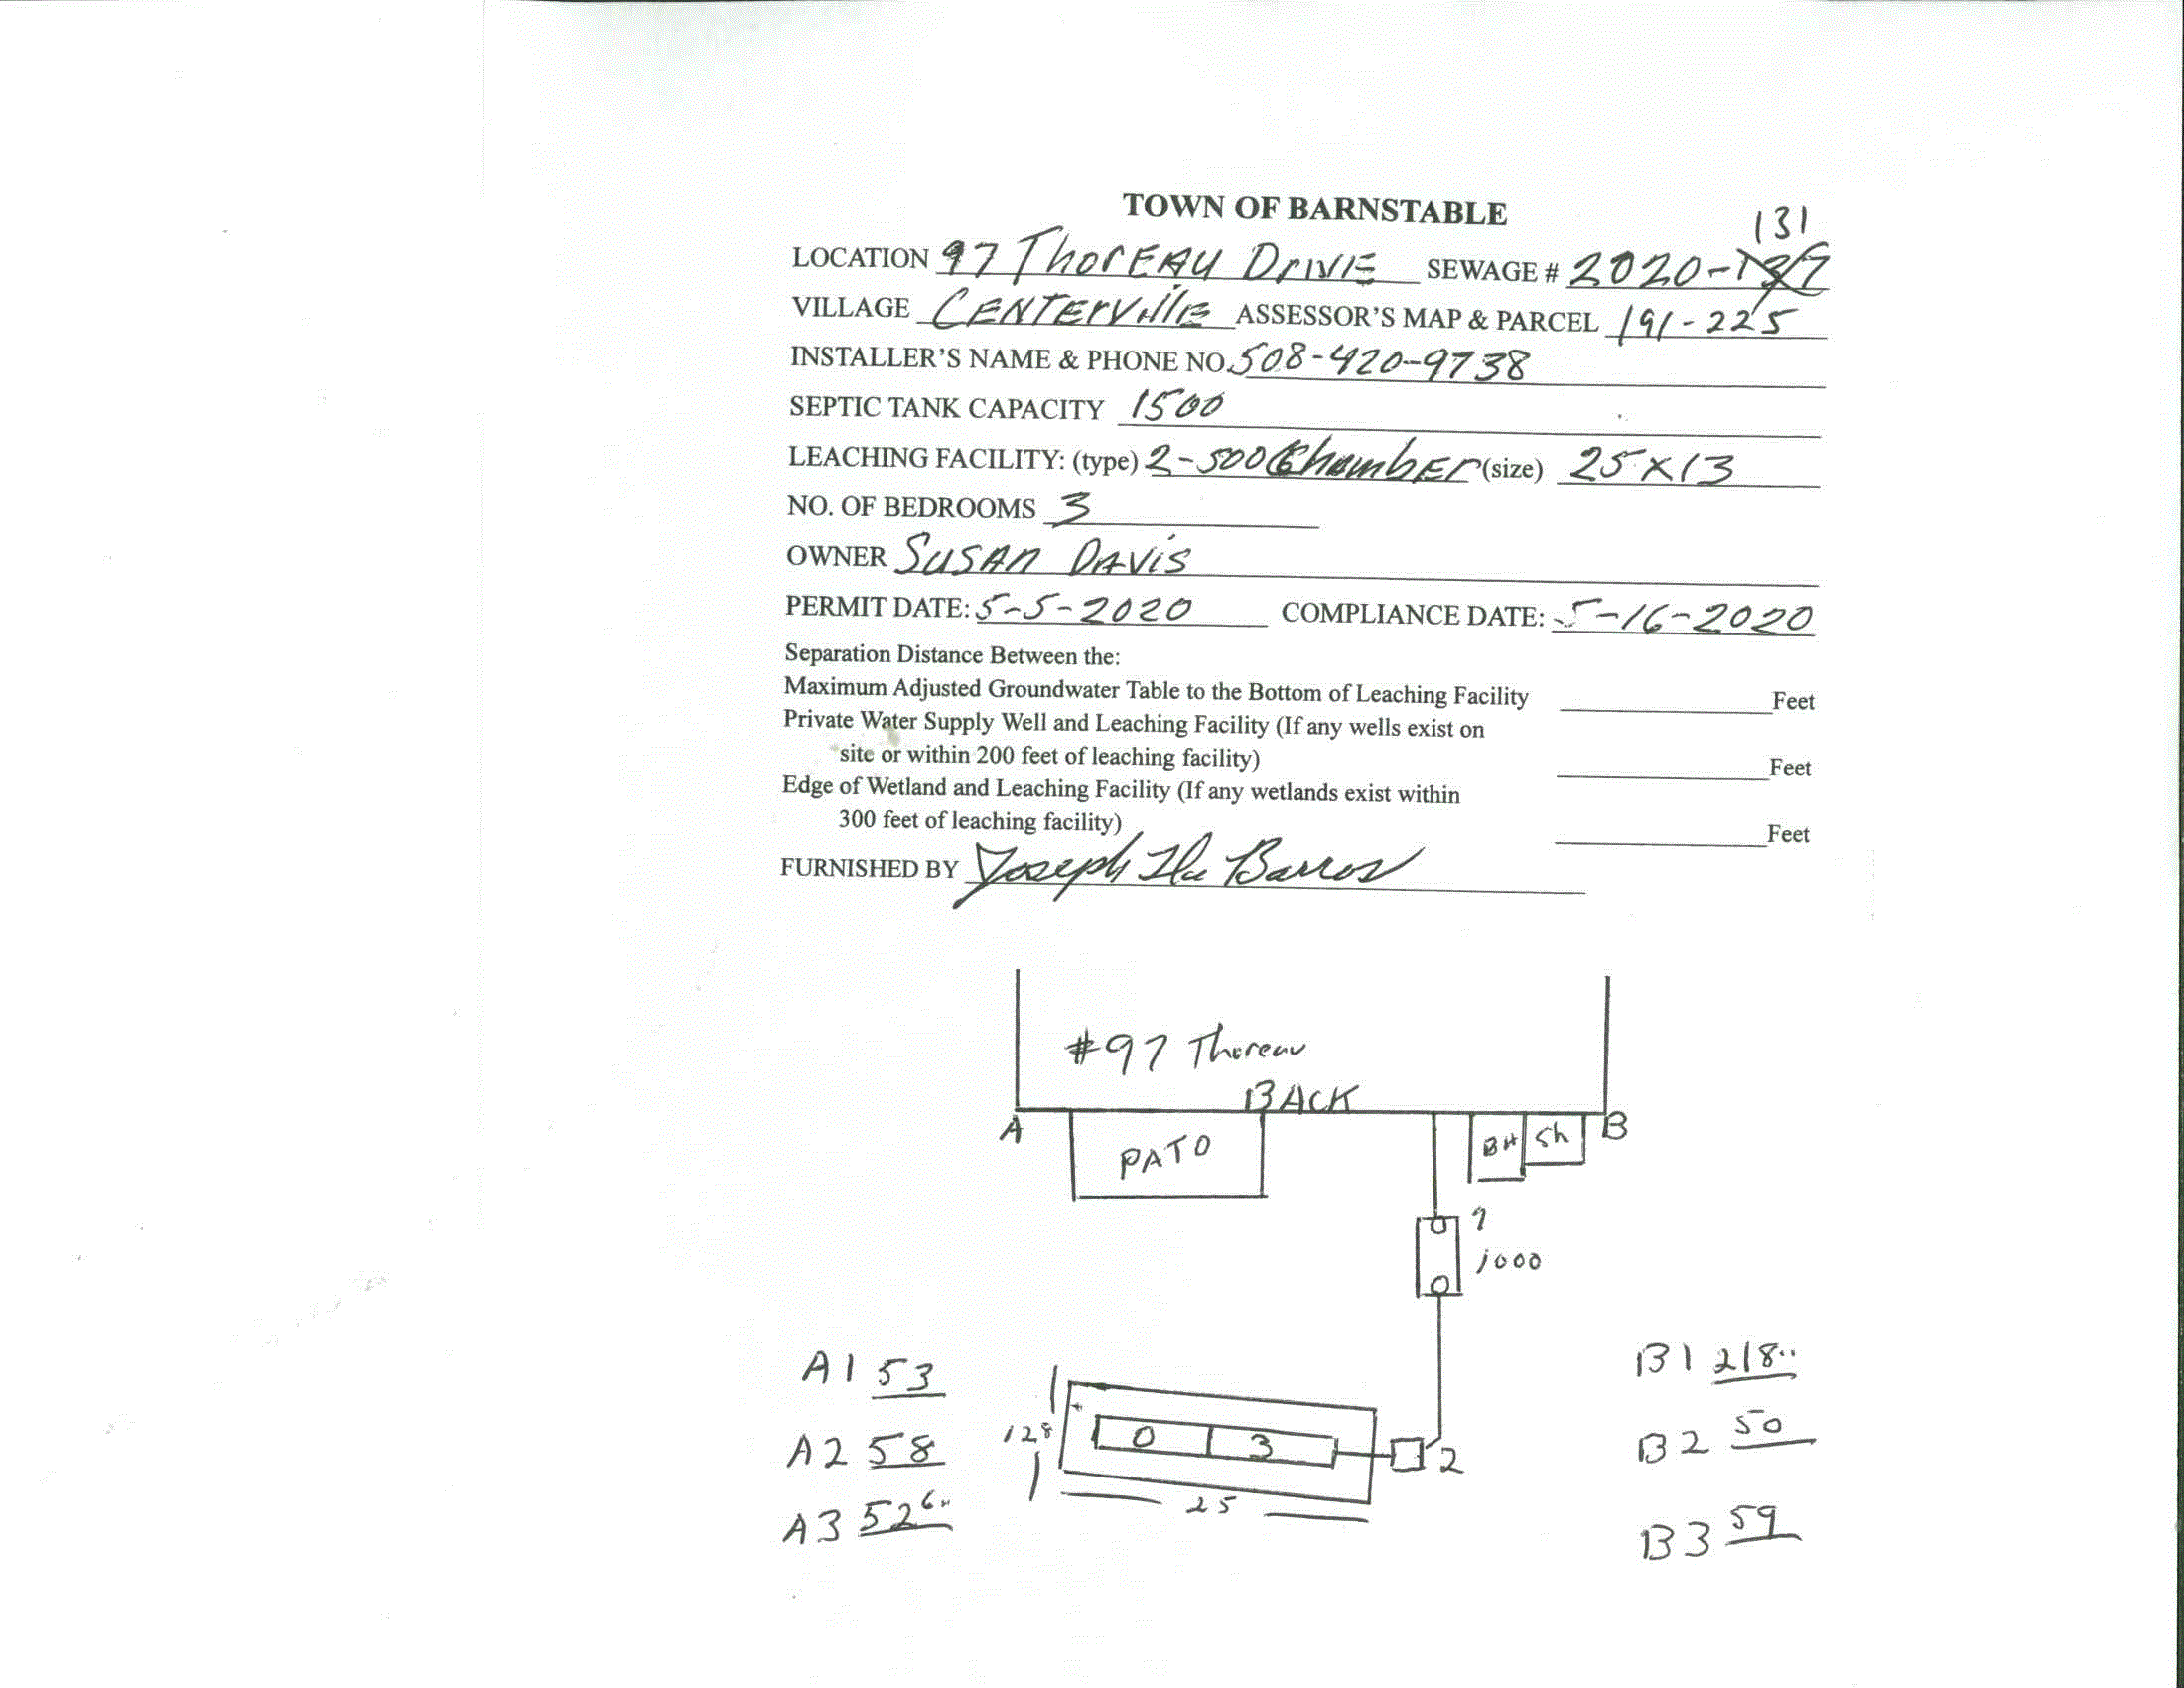 TOWN OF BARNSTABLE
131
LOCATION 97 Thoreau Drive SEWAGE # 2020-137
VILLAGE Centerville ASSESSOR'S MAP & PARCEL 191-225
INSTALLER'S NAME & PHONE NO. 508-420-9738
SEPTIC TANK CAPACITY 1500
LEACHING FACILITY: (type) 2-500 Chamber (size) 25x13
NO. OF BEDROOMS 3
OWNER SUSAN DAVIS
PERMIT DATE: 5-5-2020 COMPLIANCE DATE: 5-16-2020
Separation Distance Between the:
Maximum Adjusted Groundwater Table to the Bottom of Leaching Facility Feet
Private Water Supply Well and Leaching Facility (If any wells exist on
site or within 200 feet of leaching facility) Feet
Edge of Wetland and Leaching Facility (If any wetlands exist within
300 feet of leaching facility) Feet
FURNISHED BY Joseph De Barros
#97 Thoreau
BACK
A B
PATO BH Sh
1
1000
A1 53 B1 218"
A2 58 128 0 3 2 B2 50
25
A3 52 6" B3 59